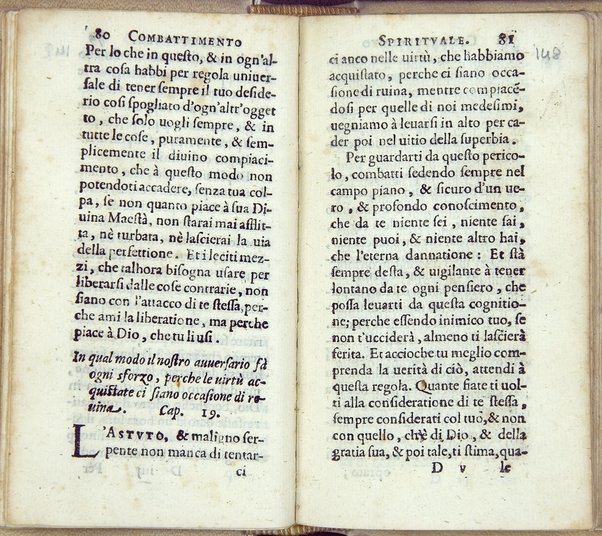 80 COMBATTIMENTO
Per lo che in questo, & in ogn'al-
tra cosa habbi per regola uniuer-
sale di tener sempre il tuo deside-
rio così spogliato d'ogn'altr'ogget
to, che solo uogli sempre, & in
tutte le cose, puramente, & sem-
plicemente il diuino compiaci-
mento, che à questo modo non
potendoti accadere, senza tua col-
pa, se non quanto piace à sua Di-
uina Maestà, non starai mai afflit-
ta, nè turbata, nè lascierai la uia
della perfettione. Et i leciti mez-
zi, che talhora bisogna usare per
liberarsi dalle cose contrarie, non
siano con l'attacco di te stessa, per-
che ami la liberatione, ma perche
piace à Dio, che tu li usi.
In qual modo il nostro auuersario fà
ogni sforzo, perche le uirtù ac-
quistate ci siano occasione di ro-
uina. Cap. 19.
L'ASTVTO, & maligno ser-
pente non manca di tentar-
ci
SPIRITVALE. 81
148
ci anco nelle uirtù, che habbiamo
acquistato, perche ci siano occa-
sione di ruina, mentre compiacē-
dosi per quelle di noi medesimi,
uegniamo à leuarsi in alto per ca-
der poi nel uitio della superbia.
Per guardarti da questo perico-
lo, combatti sedendo sempre nel
campo piano, & sicuro d'un ue-
ro, & profondo conoscimento,
che da te niente sei, niente sai,
niente puoi, & niente altro hai,
che l'eterna dannatione: Et stà
sempre desta, & uigilante à tener
lontano da te ogni pensiero, che
possa leuarti da questa cognitio-
ne; perche essendo inimico tuo, se
non t'ucciderà, almeno ti lascierà
ferita. Et accioche tu meglio com-
prenda la uerità di ciò, attendi à
questa regola. Quante fiate ti uol-
ti alla consideratione di te stessa,
sempre considerati col tuo, & non
con quello, che è di Dio, & della
gratia sua, & poi tale, ti stima, qua-
D v le